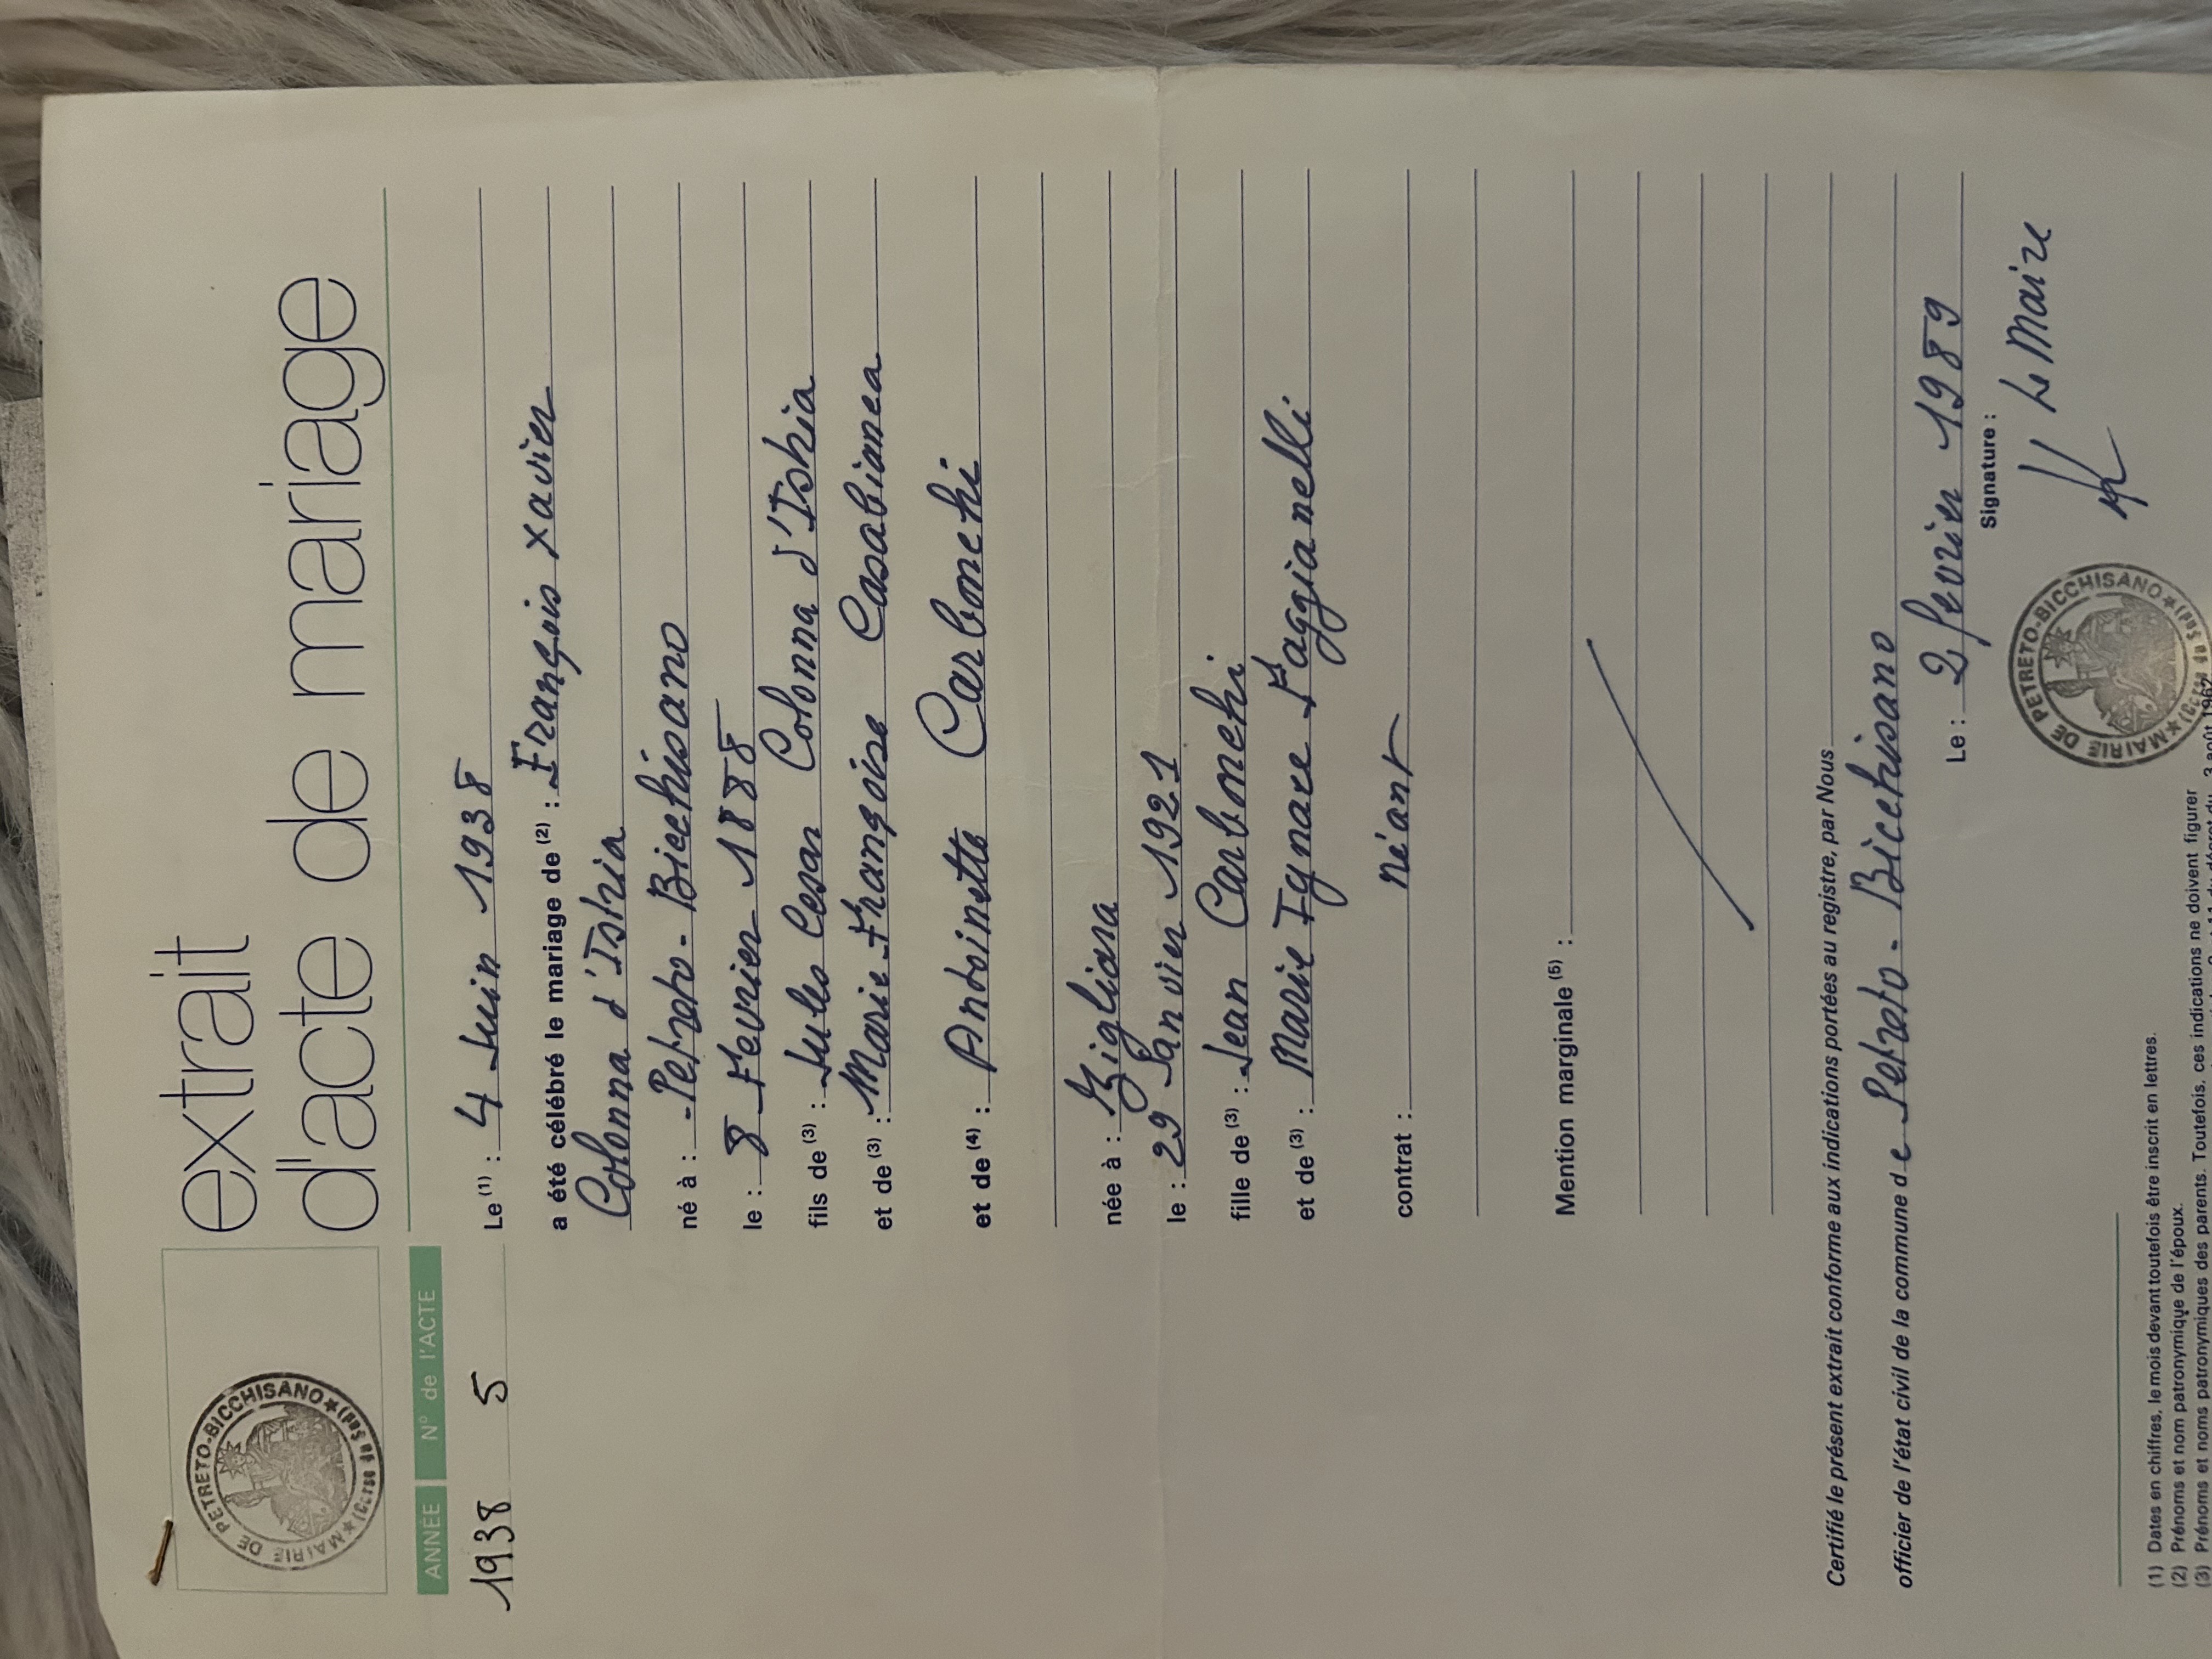 extrait
d'acte de mariage
MAIRIE DE PETRETO-BICCHISANO ★ (Corse du Sud) ★
ANNÉE N° de l'ACTE
1938 5
Le (1) : 4 Juin 1938
a été célébré le mariage de (2) : François Xavier
Colonna d'Istria
né à : Petreto-Bicchisano
le : 8 Fevrier 1888
fils de (3) : Jules Cesar Colonna d'Istria
et de (3) : Marie Françoise Casabianca
et de (4) : Antoinette Carbonchi
née à : Zigliara
le : 29 Janvier 1921
fille de (3) : Jean Carbonchi
et de (3) : Marie Ignace Faggianelli
contrat : néant
Mention marginale (5) :
Certifié le présent extrait conforme aux indications portées au registre, par Nous
officier de l'état civil de la commune de Petreto-Bicchisano
Le : 2 fevrier 1989
Signature :
Le Maire
MAIRIE DE PETRETO-BICCHISANO ★ (Corse du Sud) ★
(1) Dates en chiffres, le mois devant toutefois être inscrit en lettres.
(2) Prénoms et nom patronymique de l'époux.
(3) Prénoms et noms patronymiques des parents. Toutefois, ces indications ne doivent figurer
du décret du 3 août 1962